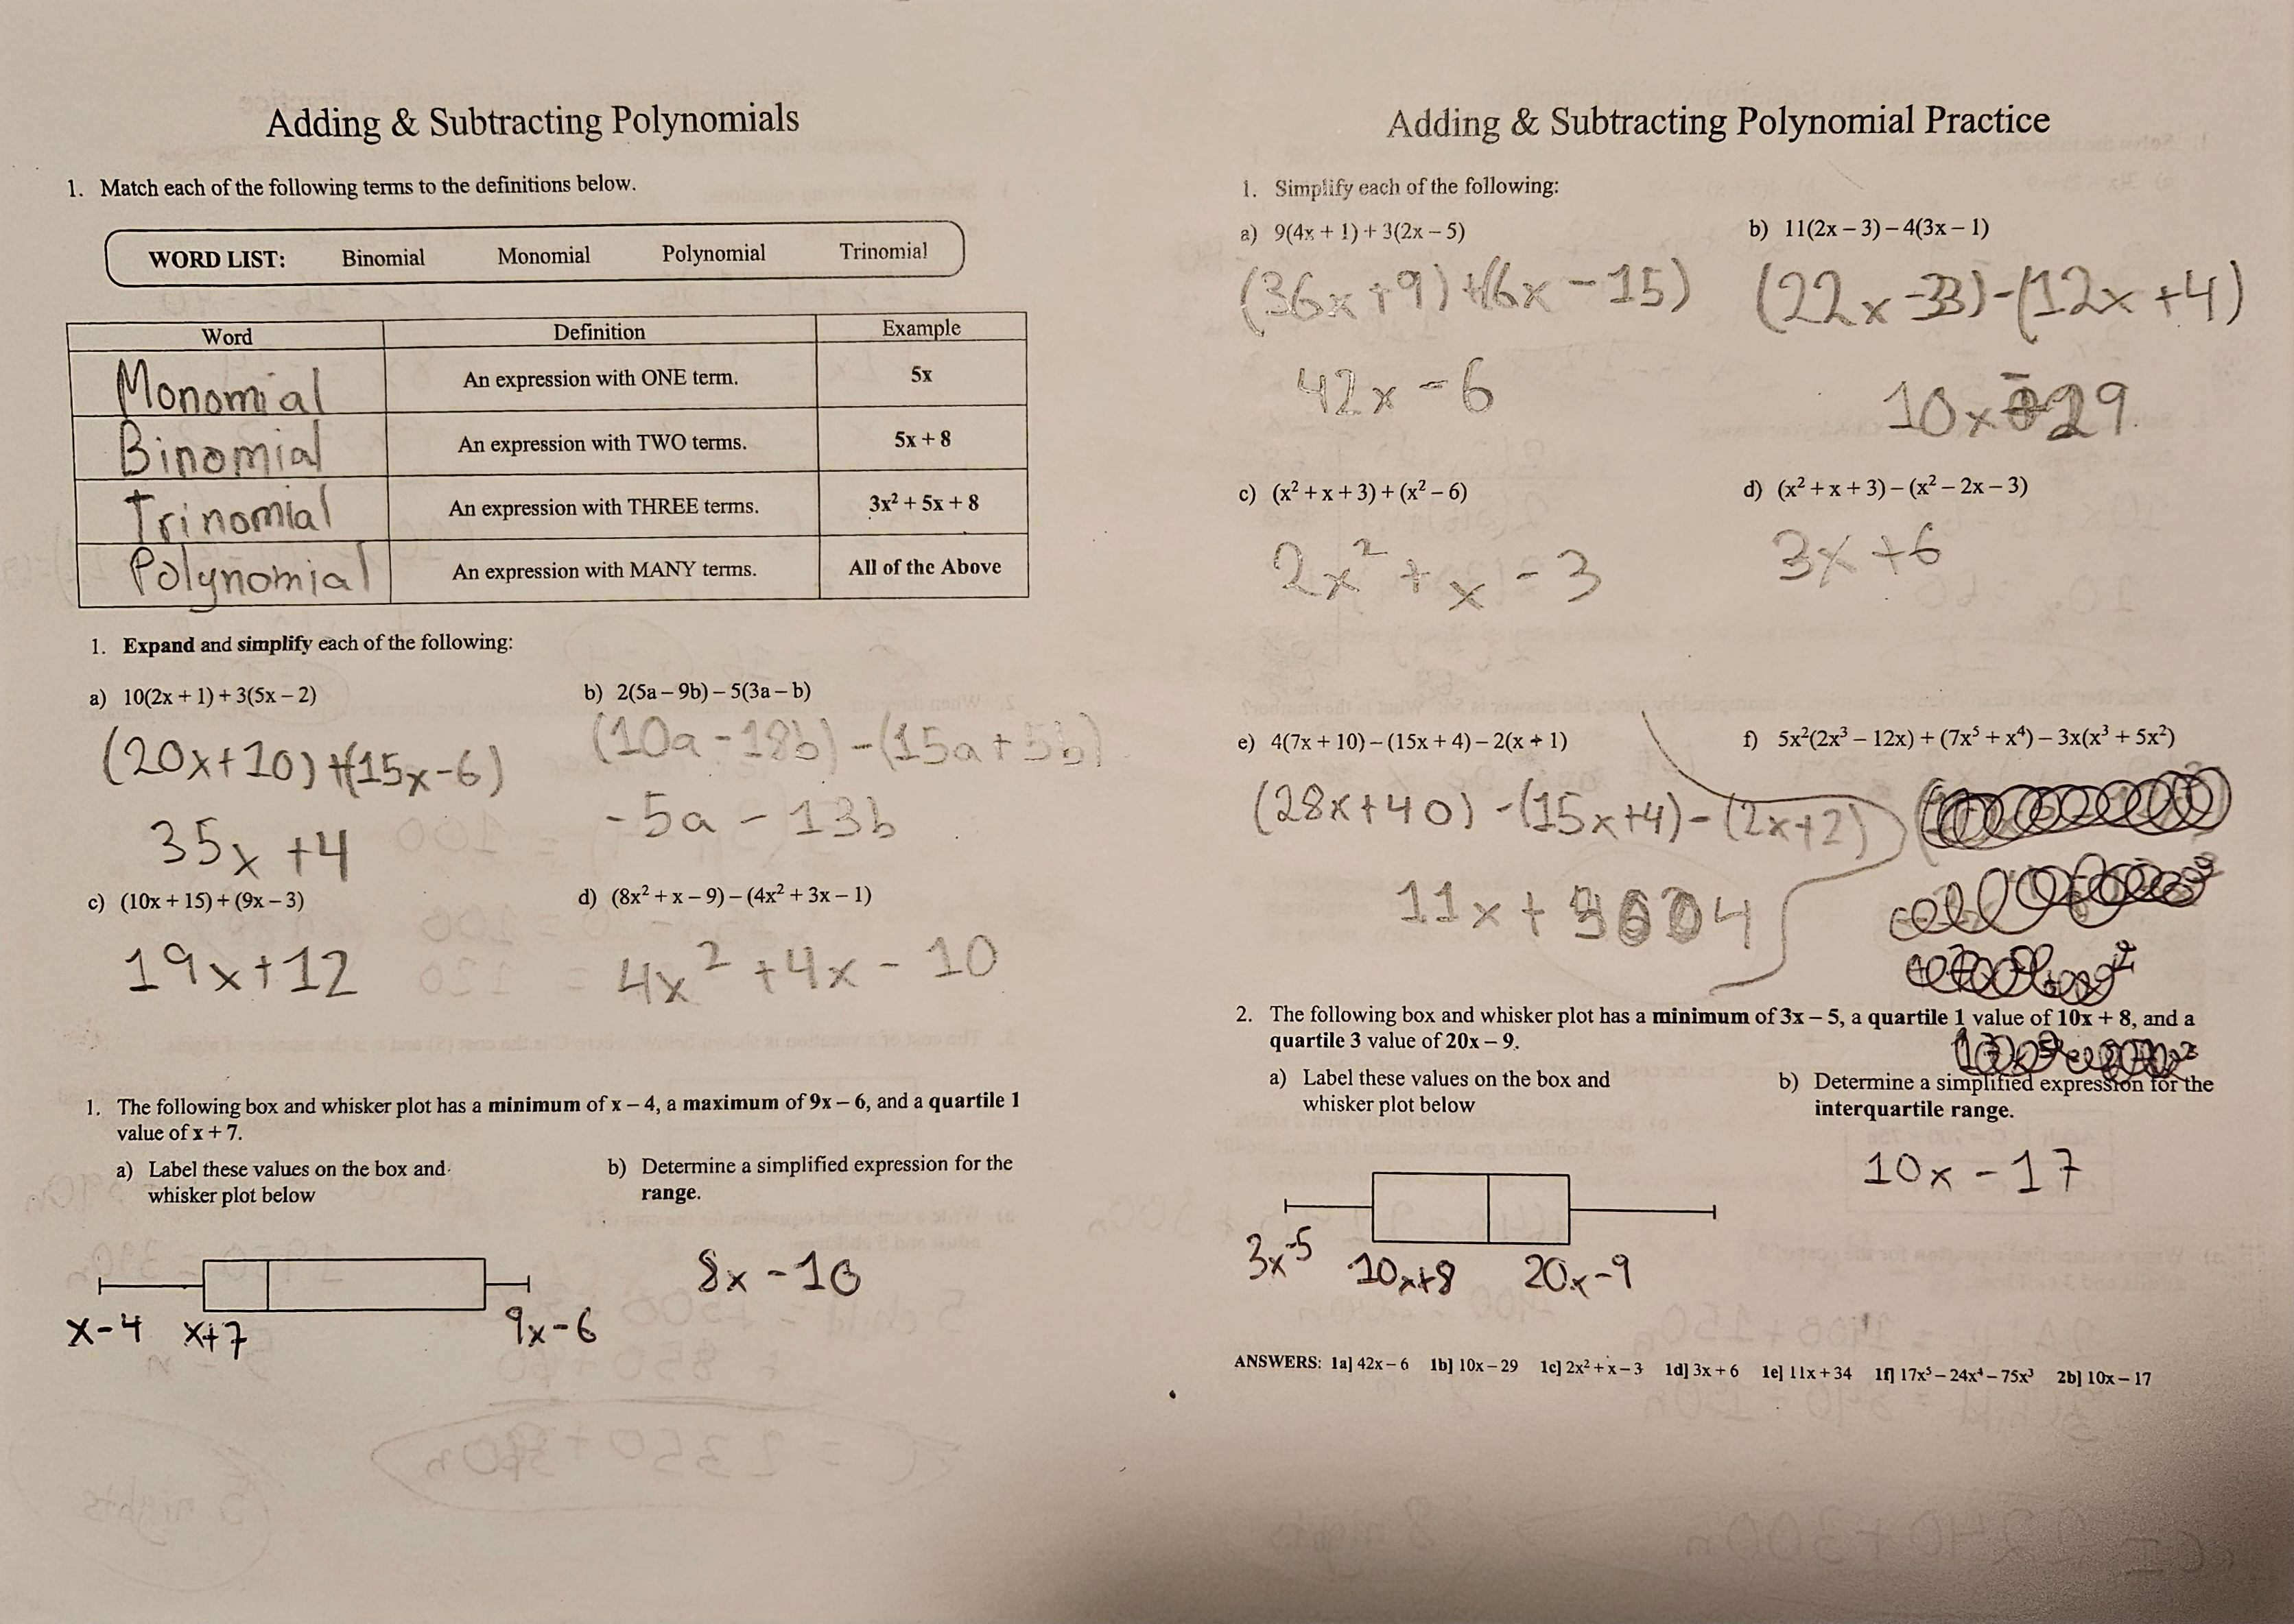 Adding & Subtracting Polynomials
1. Match each of the following terms to the definitions below.
WORD LIST: Binomial Monomial Polynomial Trinomial
Word Definition Example
Monomial An expression with ONE term. 5x
Binomial An expression with TWO terms. 5x + 8
Trinomial An expression with THREE terms. 3x² + 5x + 8
Polynomial An expression with MANY terms. All of the Above
1. Expand and simplify each of the following:
a) 10(2x + 1) + 3(5x – 2) b) 2(5a – 9b) – 5(3a – b)
(20x+10) +(15x-6) (10a-18b) -(15a+5b)
35x +4 -5a - 13b
c) (10x + 15) + (9x – 3) d) (8x² + x – 9) – (4x² + 3x – 1)
19x+12 4x² +4x - 10
1. The following box and whisker plot has a minimum of x – 4, a maximum of 9x – 6, and a quartile 1
value of x + 7.
a) Label these values on the box and b) Determine a simplified expression for the
whisker plot below range.
8x -10
x-4 x+7 9x-6
Adding & Subtracting Polynomial Practice
1. Simplify each of the following:
a) 9(4x + 1) + 3(2x – 5) b) 11(2x – 3) – 4(3x – 1)
(36x+9) +(6x-15) (22x-33)-(12x+4)
42x-6 10x-29
c) (x² + x + 3) + (x² – 6) d) (x² + x + 3) – (x² – 2x – 3)
2x² + x - 3 3x +6
e) 4(7x + 10) – (15x + 4) – 2(x + 1) f) 5x²(2x³ – 12x) + (7x⁵ + x⁴) – 3x(x³ + 5x²)
(28x+40) -(15x+4)-(2x+2)
11x + 4
2. The following box and whisker plot has a minimum of 3x – 5, a quartile 1 value of 10x + 8, and a
quartile 3 value of 20x – 9.
a) Label these values on the box and b) Determine a simplified expression for the
whisker plot below interquartile range.
10x-17
3x-5 10x+8 20x-9
ANSWERS: 1a] 42x – 6 1b] 10x – 29 1c] 2x² + x – 3 1d] 3x + 6 1e] 11x + 34 1f] 17x⁵ – 24x⁴ – 75x³ 2b] 10x – 17